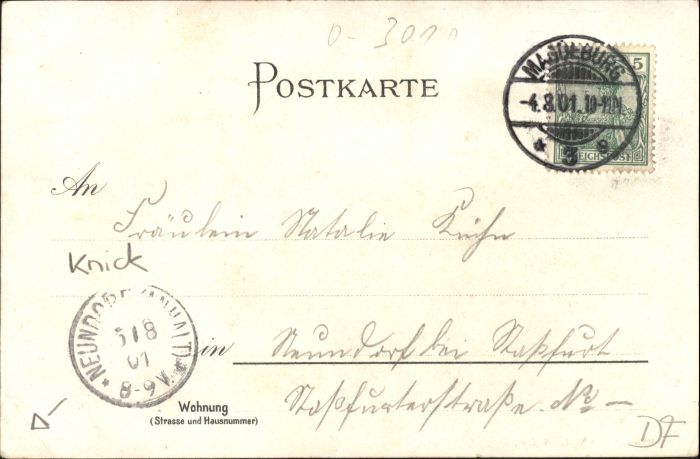 0-3010
POSTKARTE
MAGDEBURG
-4.8.01.10-11N.
* 3 e
5
REICHSPOST
An
Fräulein Natalie Kühn
Knick
NEUNDORF (ANHALT)
5/8
01
8-9V.
in Neundorf bei Staßfurt
Wohnung
(Strasse und Hausnummer)
Staßfurterstraße No —
DF